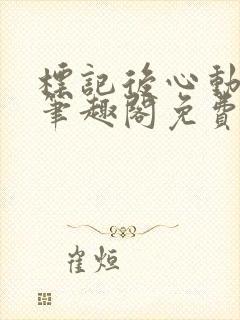 標記後心動
筆趣閣免費
崔烜